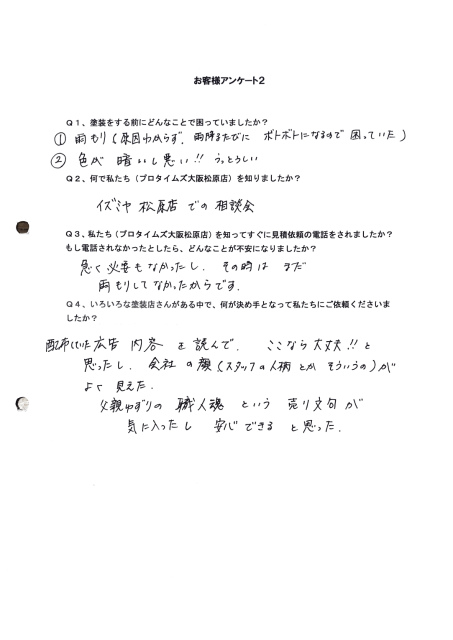 お客様アンケート２
Ｑ１、塗装をする前にどんなことで困っていましたか？
① 雨もり（原因わからず、雨降るたびに ボトボトになるので 困っていた）
② 色が 暗いし悪い!! うっとうしい
Ｑ２、何で私たち（プロタイムズ大阪松原店）を知りましたか？
イズミヤ 松原店 での 相談会
Ｑ３、私たち（プロタイムズ大阪松原店）を知ってすぐに見積依頼の電話をされましたか？
もし電話されなかったとしたら、どんなことが不安になりましたか？
急ぐ必要もなかったし、その時は まだ
雨もりしてなかったからです.
Ｑ４、いろいろな塗装店さんがある中で、何が決め手となって私たちにご依頼くださいま
したか？
配布していた広告 内容 を 読んで、 ここなら大丈夫!! と
思ったし、会社 の 顔（スタッフの人柄 とか そういうの）が
よく 見えた.
父親ゆずりの 職人魂 という 売り文句 が
気に入ったし 安心できる と思った.